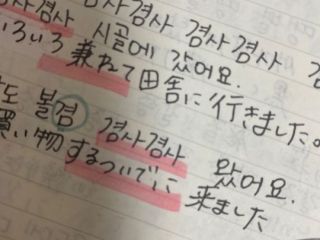 경사경사 경사경사 경사경사
시골에 갔어요.
いろいろ兼ねて田舎に行きました。
도 볼겸 경사경사 왔어요.
買い物するついでに 来ました